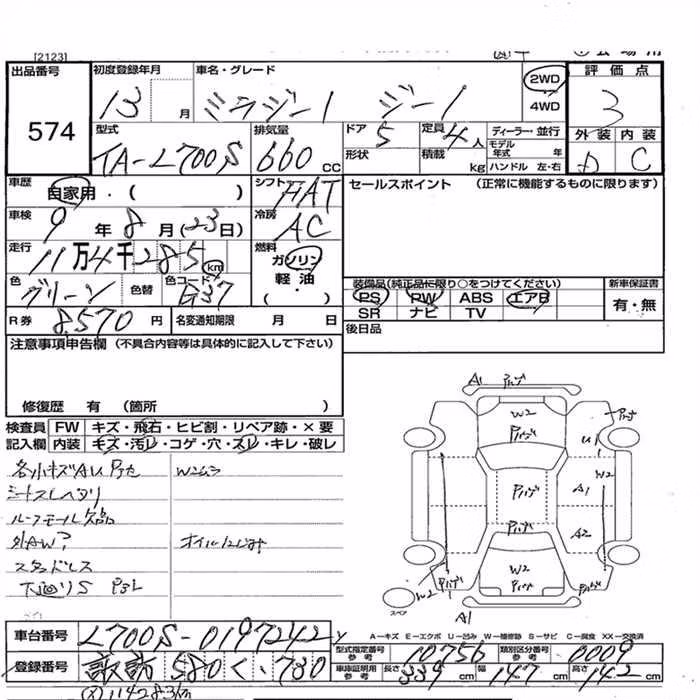 [2123]
出品番号
574
初度登録年月
13 月
車名・グレード
ミラジーノ ジーノ
2WD
4WD
評価点
3
外装 内装
D C
型式
TA-L700S
排気量
660 CC
ドア
5
形状
定員
4人
積載 kg
ディーラー・並行
モデル年式 年
ハンドル 左・右
車歴
自家用・( )
シフト
FAT
セールスポイント (正常に機能するものに限ります)
車検
9年 8月(23日)
冷房
AC
走行
11万4千285 km
燃料
ガソリン
軽油
( ・ )
色
グリーン
色替
色コード
G37
装備品(純正品に限り○をつけてください)
新車保証書
PS PW ABS エアB
SR ナビ TV
有・無
R券 8570 円
名変通知期限 月 日
後日品
注意事項申告欄 (不具合内容等は具体的に記入して下さい)
修復歴 有 (箇所 )
検査員記入欄
FW キズ・飛石・ヒビ割・リペア跡・×要
内装 キズ・汚レ・コゲ・穴・スレ・キレ・破レ
各小キズAU
W2ムラ
シートスレヘタリ
ルーフモール欠品
外AW?
オイルにじみ
スタッドレス
下廻りS
A1
W2
U1
W2
A1
A2
W2
W2
スペア
A1
A-キズ E-エクボ U-凹み W-補修跡 S-サビ C-腐食 XX-交換済
車台番号
L700S-0197242
型式指定番号
参考
10756
類別区分番号
参考
0009
登録番号
諏訪 580 く・780
車庫証明用
参考
長さ 339 cm
幅 147 cm
高さ 142 cm